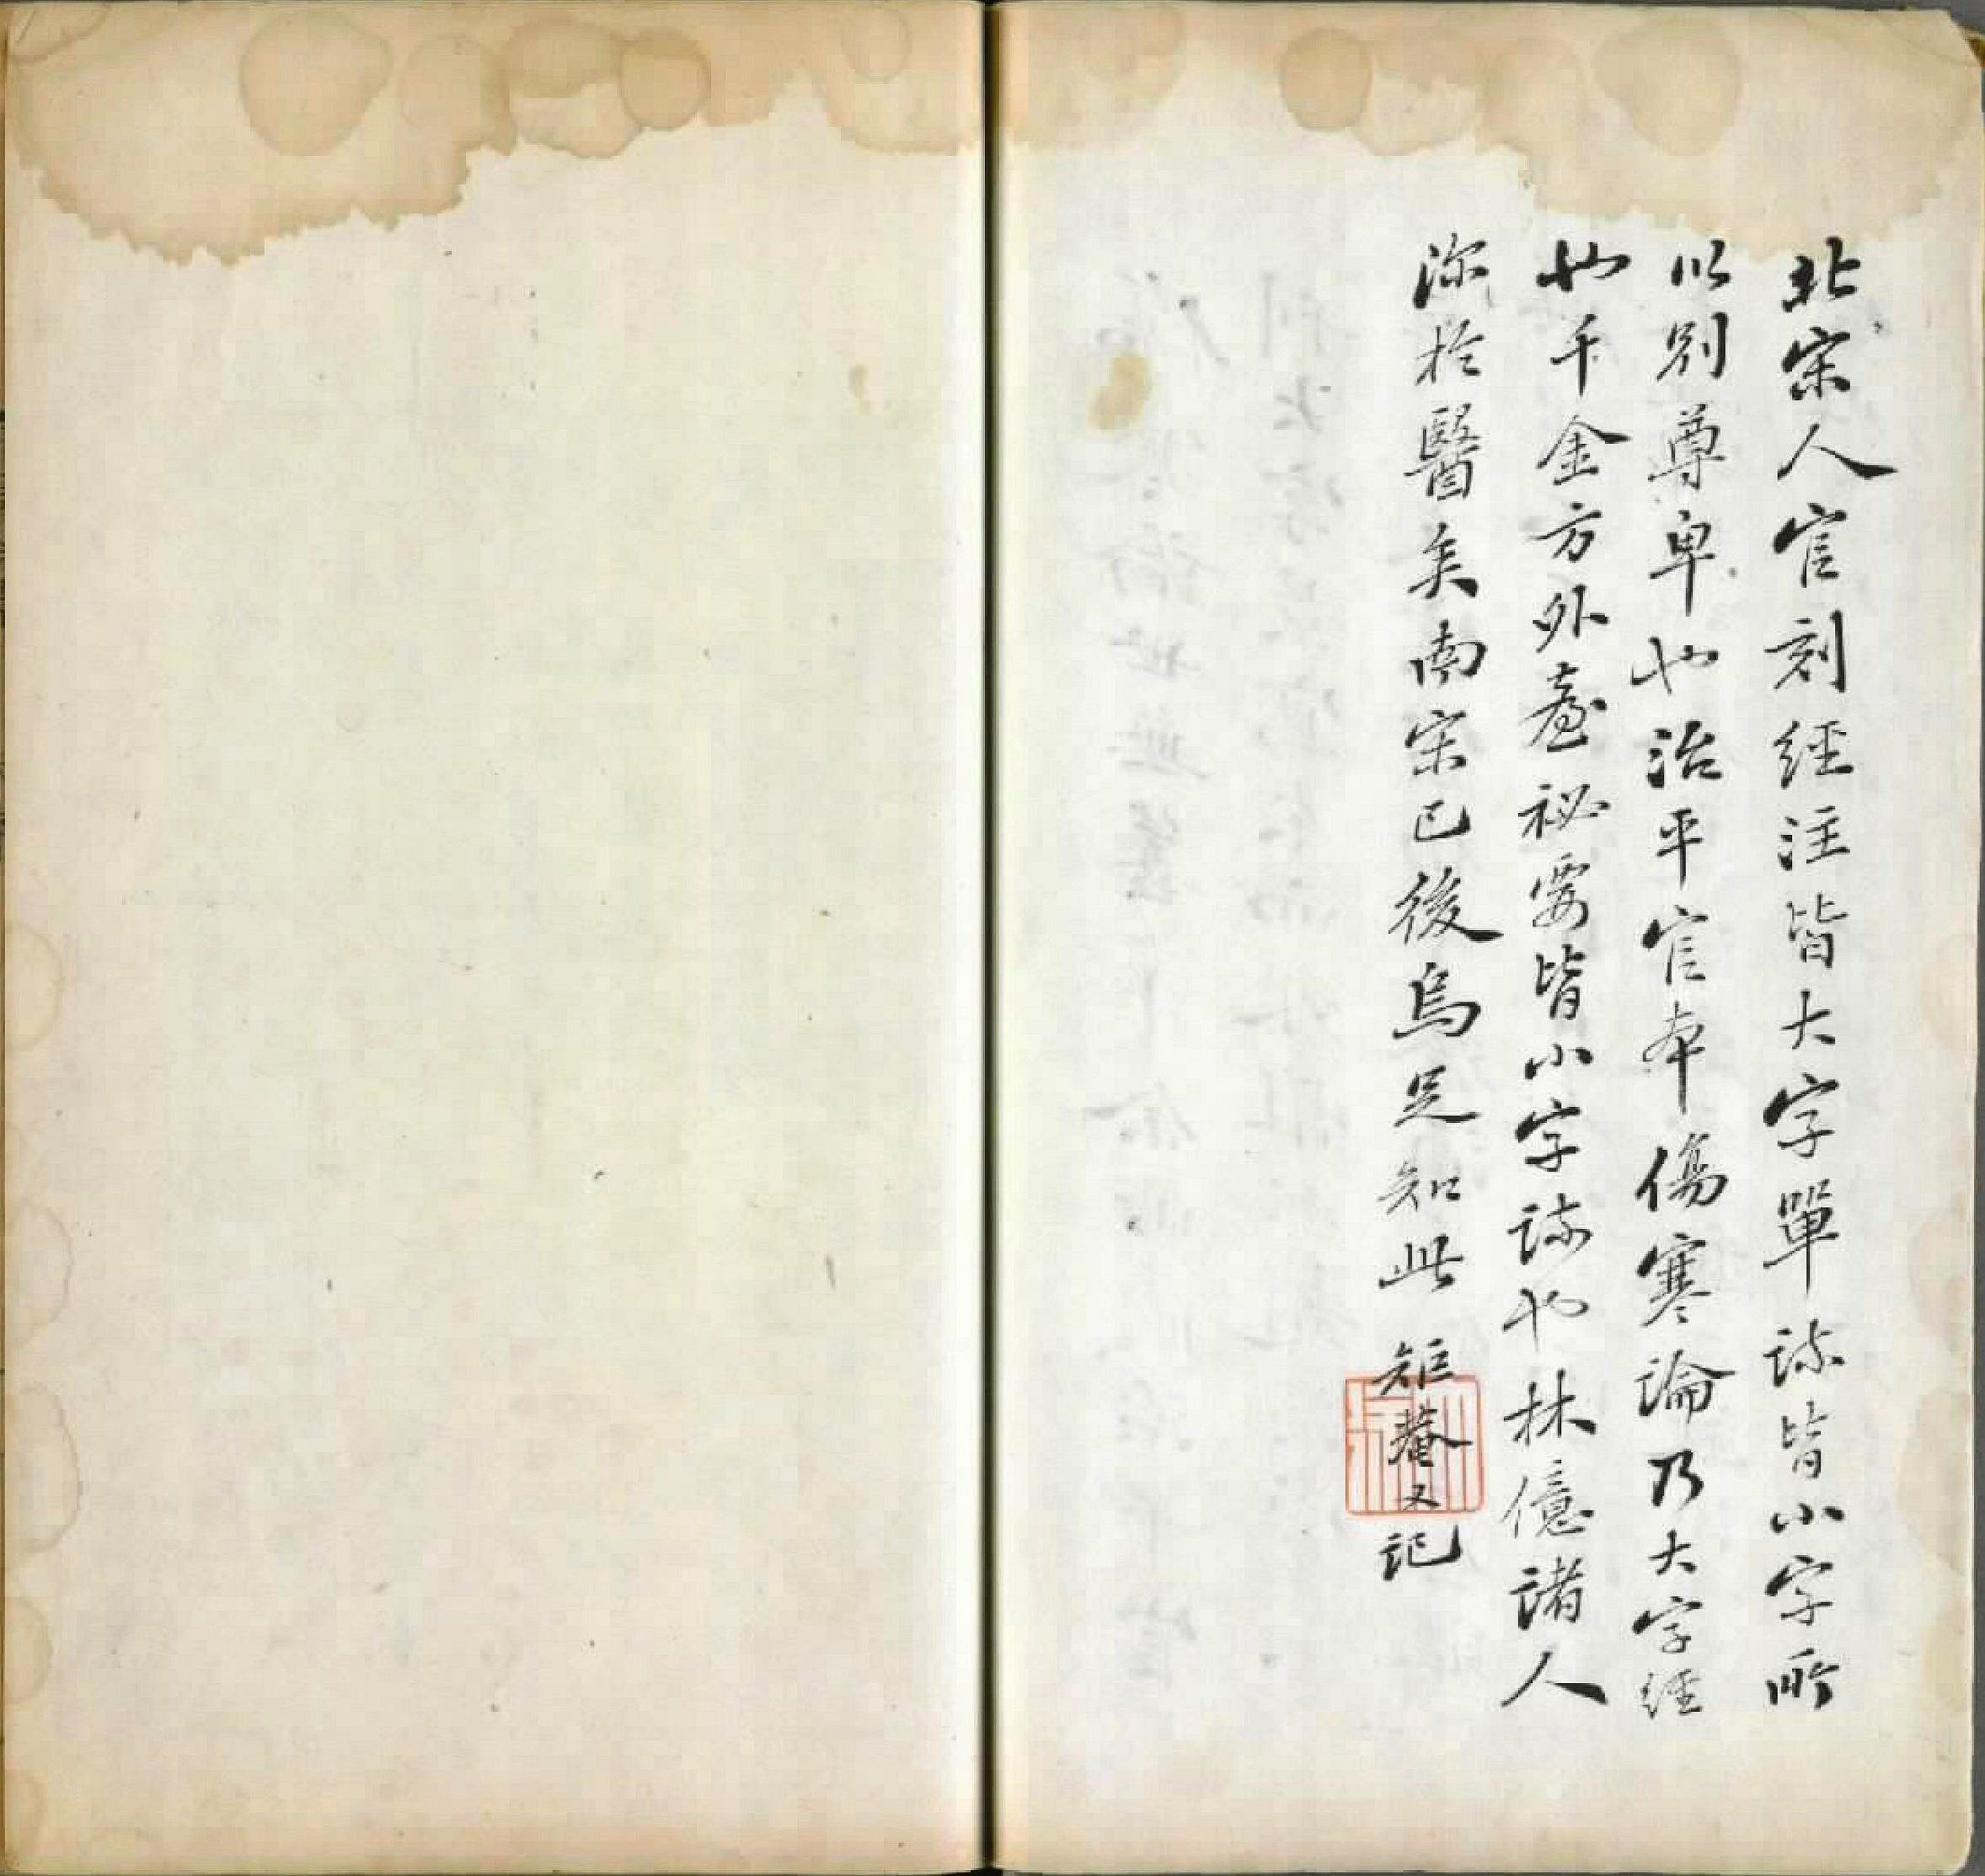 北宋人官刻經注皆大字單疏皆小字所
以別尊卑也治平官本傷寒論乃大字經
也千金方外臺秘要皆小字疏也林億諸人
深於醫矣南宋已後烏足知此 矩菴又記